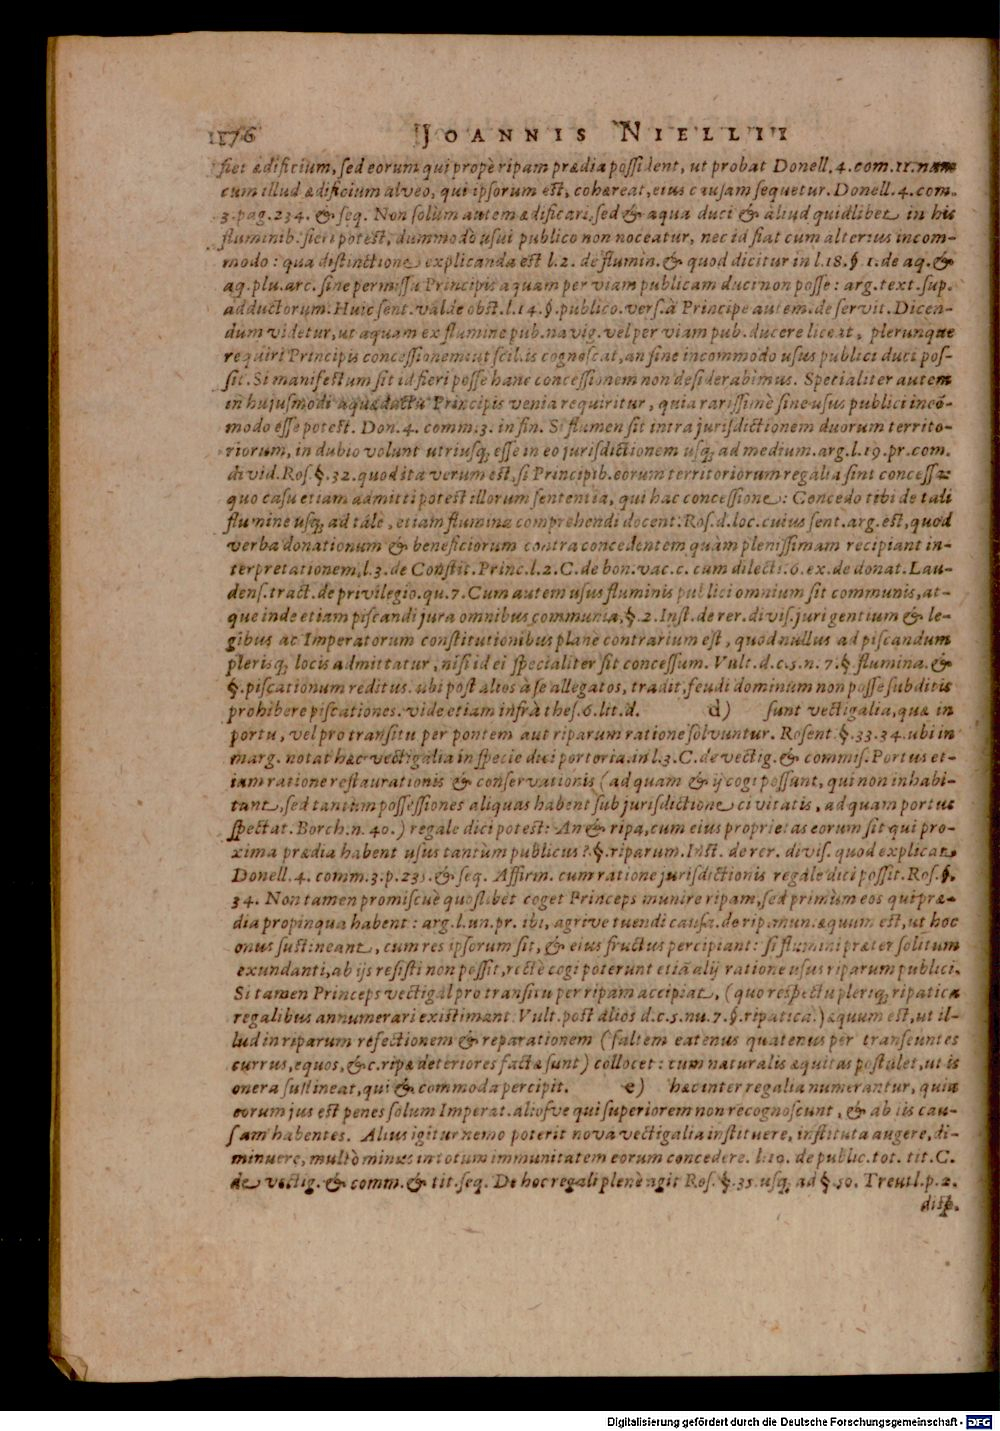 1176 JOANNIS NIELLII
fiet ædificium, sed eorum qui propè ripam prædia possident, ut probat Donell. 4. com. 11. nam
cum illud ædificium alveo, qui ipsorum est, cohæreat, eius causam sequetur. Donell. 4. com.
3. pag. 234. & seq. Non solùm autem ædificari, sed & aqua duci & aliud quidlibet in his
fluminib. fieri potest, dummodo usui publico non noceatur, nec id fiat cum alterius incom-
modo: qua distinctione explicanda est l. 2. de flumin. & quod dicitur in l. 18. §. 1. de aq. &
aq. plu. arc. sine permissu Principis aquam per viam publicam duci non posse: arg. text. sup.
adductorum. Huic sent. valde obst. l. 14. §. publico. vers. à Principe autem. de servit. Dicen-
dum videtur, ut aquam ex flumine pub. navig. vel per viam pub. ducere liceat, plerunque
requiri Principis concessionem: ut scil. is cognoscat, an sine incommodo usus publici duci pos-
sit. Si manifestum sit id fieri posse hanc concessionem non desiderabimus. Specialiter autem
in hujusmodi aquæductu Principis venia requiritur, quia rarissimè sine usus publici incō-
modo esse potest. Don. 4. comm. 3. in fin. Si flumen sit intra jurisdictionem duorum territo-
riorum, in dubio volunt utriusq; esse in eo jurisdictionem usq; ad medium. arg. l. 19. pr. com.
divid. Ros. §. 32. quod ita verum est, si Principib. eorum territoriorum regalia sint concessa:
quo casu etiam admitti potest illorum sententia, qui hac concessione: Concedo tibi de tali
flumine usq; ad tale, etiam flumina comprehendi docent. Ros. d. loc. cuius sent. arg. est, quod
verba donationum & beneficiorum contra concedentem quàm plenissimam recipiant in-
terpretationem, l. 3. de Constit. Princ. l. 2. C. de bon. vac. c. cum dilecti. 6. ex. de donat. Lau-
dens. tract. de privilegio. qu. 7. Cum autem usus fluminis publici omnium sit communis, at-
que inde etiam piscandi jura omnibus communia, §. 2. Inst. de rer. divis. juri gentium & le-
gibus ac Imperatorum constitutionibus planè contrarium est, quod nullus ad piscandum
plerisq; locis admittatur, nisi id ei specialiter sit concessum. Vult. d. c. 5. n. 7. §. flumina. &
§. piscationum reditus. ubi post alios à se allegatos, tradit, feudi dominum non posse subditis
prohibere piscationes. vide etiam infrà thes. 6. lit. d. d) sunt vectigalia, quæ in
portu, vel pro transitu per pontem aut riparum ratione solvuntur. Rosent. §. 33. 34. ubi in
marg. notat hæc vectigalia in specie dici portoria. in l. 3. C. de vectig. & commiss. Portus et-
iam ratione restaurationis & conservationis (ad quam & ij cogi possunt, qui non inhabi-
tant, sed tantùm possessiones aliquas habent sub jurisdictione civitatis, ad quam portus
spectat. Borch. n. 40.) regale dici potest: An & ripa, cum eius proprietas eorum sit qui pro-
xima prædia habent usus tantùm publicus? §. riparum. Inst. de rer. divis. quod explicat
Donell. 4. comm. 3. p. 233. & seq. Affirm. cum ratione jurisdictionis regale dici possit. Ros. §.
34. Non tamen promiscuè quoslibet coget Princeps munire ripam, sed primùm eos qui præ-
dia propinqua habent: arg. l. un. pr. ibi, agrive tuendi causa. de rip. mun. æquum est, ut hoc
onus sustineant, cum res ipsorum sit, & eius fructus percipiant: si flumini præter solitum
exundanti, ab ijs resisti non possit, rectè cogi poterunt etiā alij ratione usus riparum publici.
Si tamen Princeps vectigal pro transitu per ripam accipiat, (quo respectu pleriq; ripatica
regalibus annumerari existimant. Vult. post alios d. c. 5. nu. 7. §. ripatica.) æquum est, ut il-
lud in riparum refectionem & reparationem (saltem eatenus quatenus per transeuntes
currus, equos, &c. ripæ deteriores factæ sunt) collocet: cum naturalis æquitas postulet, ut is
onera sustineat, qui & commoda percipit. e) hæc inter regalia numerantur, quia
eorum jus est penes solum Imperat. aliosve qui superiorem non recognoscunt, & ab iis cau-
sam habentes. Alius igitur nemo poterit nova vectigalia instituere, instituta augere, di-
minuere, multò minus in totum immunitatem eorum concedere. l. 10. de public. tot. tit. C.
de vectig. & comm. & tit. seq. De hoc regali plenè agit Ros. §. 35. usq; ad §. 50. Treutl. p. 2.
disp.
Digitalisierung gefördert durch die Deutsche Forschungsgemeinschaft - DFG